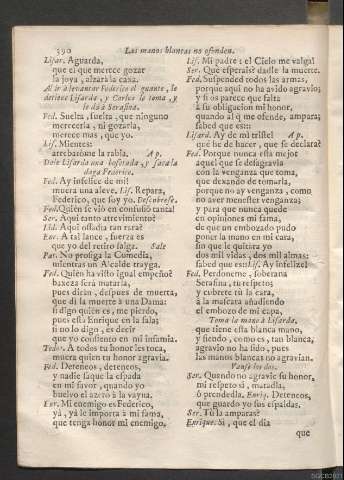 390 Las manos blancas no ofenden.
Lisar. Aguarda,
que el que merece gozar
la joya, alzarà la caxa.
Al ir à levantar Federico el guante, le
detiene Lisarda, y Carlos la toma, y
le dà à Serafina.
Fed. Suelta, suelta, que ninguno
mereceria, ni gozarla,
merece mas, que yo.
Lis. Mientes:
arrebatòme la rabia. Ap.
Dale Lisarda una bofetada, y saca la
daga Federico.
Fed. Ay infelice de mi!
muera una aleve. Lis. Repara,
Federico, que soy yo. Descubrese.
Fed. Quièn se viò en confusiò tanta!
Ser. Aqui tanto atrevimiento!
Tid. Aqui ossadia tan rara!
Enr. A tal lance, fuerza es
que yo del retiro salga. Sale
Pat. No prosiga la Comedia,
mientras un Alcalde trayga.
Fed. Quièn ha visto igual empeño!
baxeza serà matarla,
pues diràn, despues de muerta,
que dì la muerte à una Dama:
si digo quièn es, me pierdo,
pues està Enrique en la sala;
si no lo digo, es decir
que yo consiento en mi infamia.
Todos. A todos tu honor les toca,
muera quien tu honor agravia.
Fed. Deteneos, deteneos,
y nadie saque la espada
en mi favor, quando yo
buelvo el azero à la vayna.
Enr. Mi enemigo es Federico,
yà, yà le importa à mi fama,
que tenga honor mi enemigo.
Lis. Mi padre: el Cielo me valga!
Ser. Què esperais? dadle la muerte.
Fed. Suspended todos las armas,
porque aqui no ha avido agravio;
y si os parece que falta
à su obligacion mi honor,
quando al q̃ me ofende, ampara;
sabed que es::-
Lisard. Ay de mi triste! Ap.
què he de hacer, que se declara?
Fed. Porque nunca està mejor
aquel que se desagravia
con la venganza que toma,
que dexando de tomarla,
porque no ay venganza, como
no aver menester venganza;
y para que nunca quede
en opiniones mi fama,
de que un embozado pudo
poner la mano en mi cara,
sin que le quitára yo
dos mil vidas, dos mil almas:
sabed que es::- Lis. Ay infelize!
Fed. Perdoneme, soberana
Serafina, tu respeto;
y cubrete tù la cara,
à la mascara añadiendo
el embozo de mi capa,
Toma la mano à Lisarda,
que tiene esta blanca mano,
y siendo, como es, tan blanca,
agravio no ha sido, pues
las manos blancas no agravian.
Vanse los dos.
Ser. Quando no agravie su honor,
mi respeto sì, matadla,
ò prendedla. Enriq. Deteneos,
que guardo yo sus espaldas.
Ser. Tù la amparas?
Enrique. Sì, que el dia
que